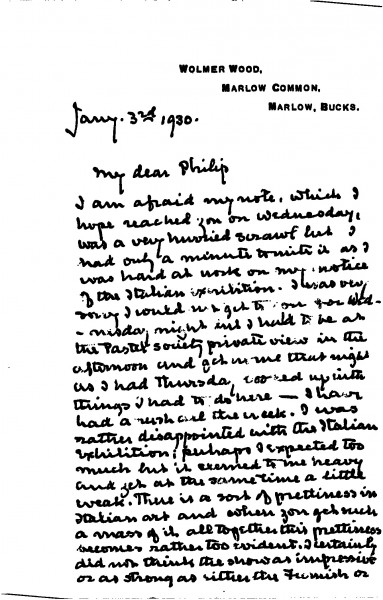 WOLMER WOOD,
MARLOW COMMON,
MARLOW, BUCKS.
Jany. 3rd 1930.
My dear Philip
I am afraid my note, which I
hope reached you on Wednesday,
was a very hurried scrawl but I
had only a minute to write it as I
was hard at work on my notice
of the Italian exhibition. I was very
sorry I could not get to you for Wed-
-nesday night but I had to be at
the Pastel Society private view in the
afternoon and get home that night
as I had Thursday up with
things I had to do here — I have
had a rush all the week. I was
rather disappointed with the Italian
Exhibition; perhaps I expected too
much but it seemed to me heavy
and yet at the same time a little
weak. There is a sort of prettiness in
Italian art and when you get such
a mass of it all together this prettiness
becomes rather too evident. I certainly
did not think the show as impressive
or as strong as either the Flemish or